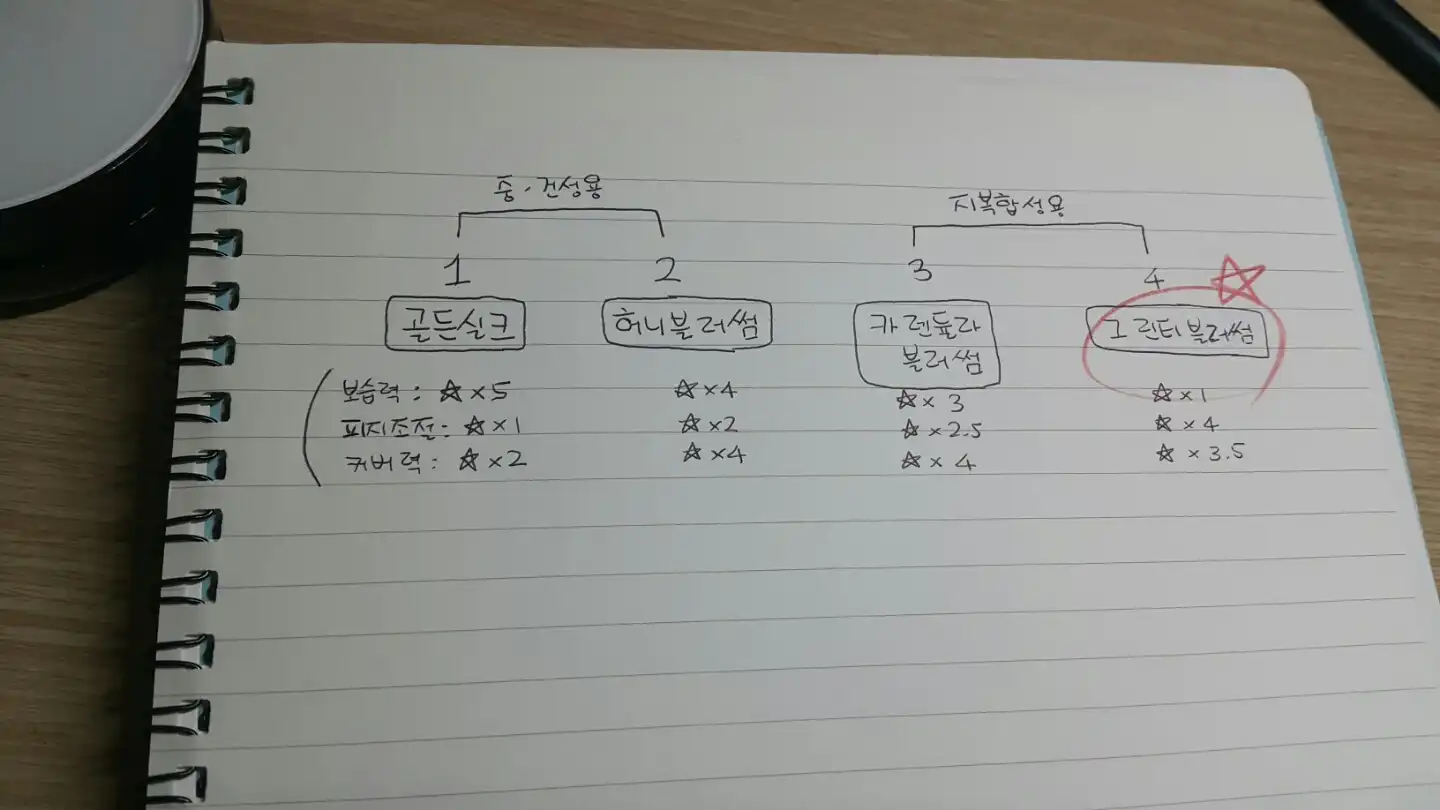 중·건성용
지복합성용
1 2 3 4 ☆
골든실크 허니블러썸 카렌듈라 그린티블러썸
블러썸
보습력 : ☆×5 ☆×4 ☆×3 ☆×1
피지조절 : ☆×1 ☆×2 ☆×2.5 ☆×4
커버력 : ☆×2 ☆×4 ☆×4 ☆×3.5